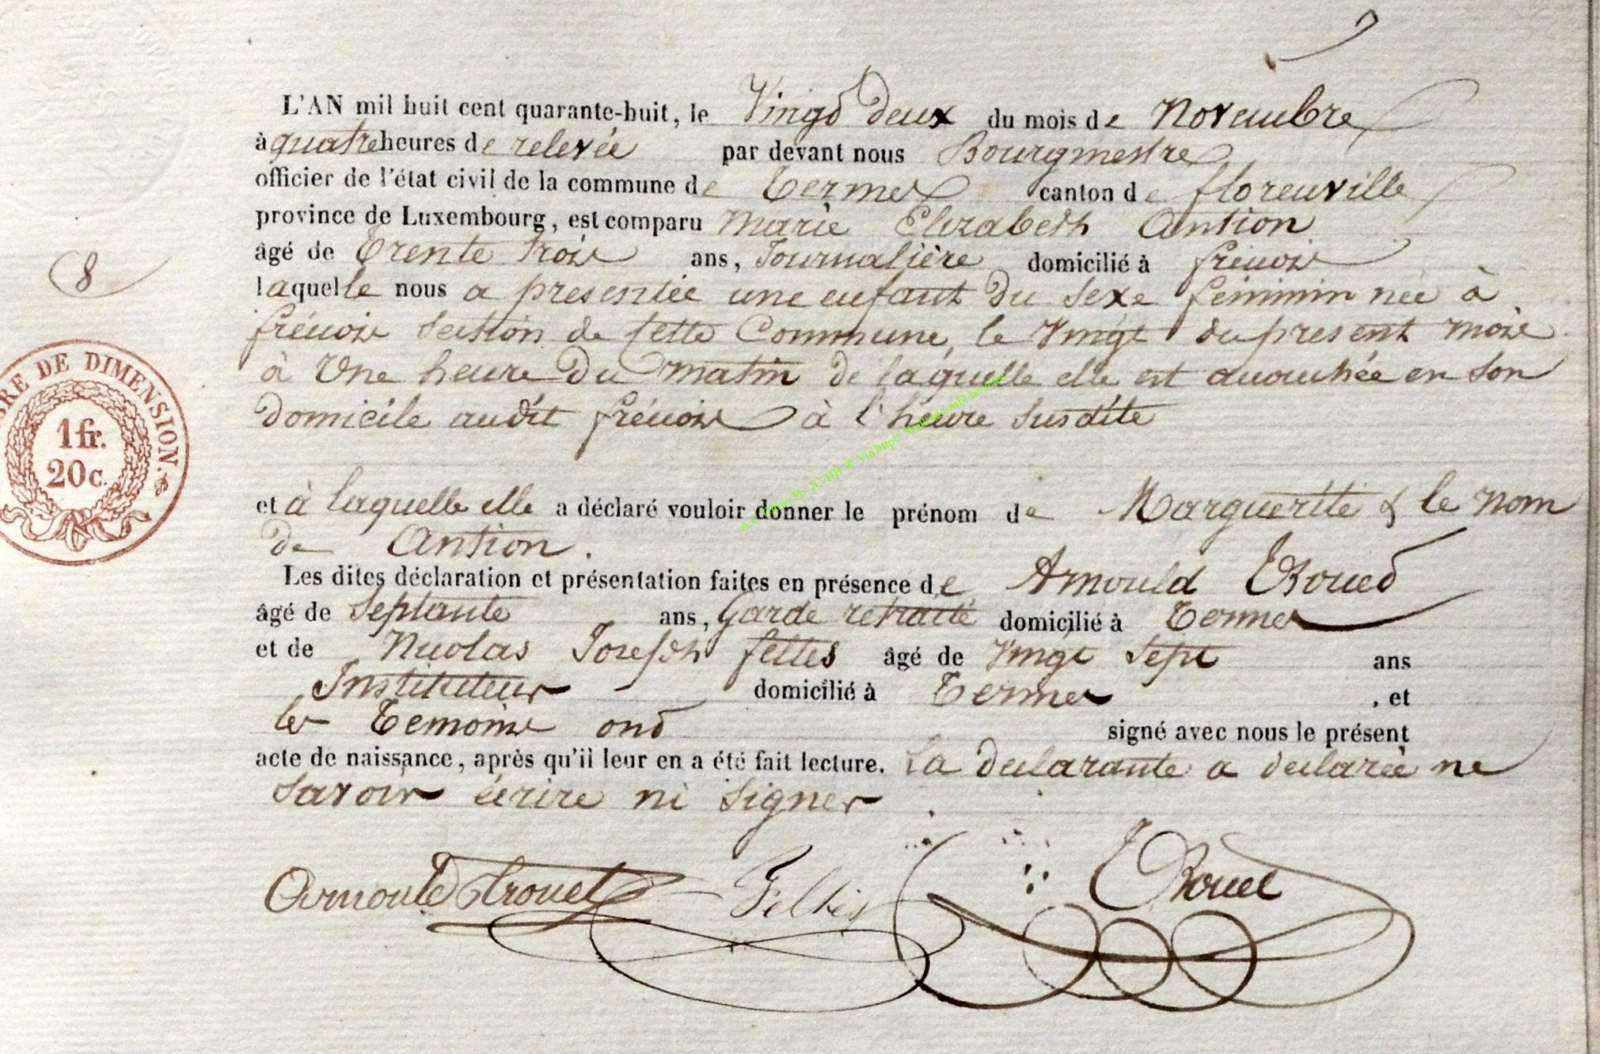 L'AN mil huit cent quarante-huit, le Vingt deux du mois de Novembre
à quatre heures de relevée par devant nous Bourgmestre
officier de l'état civil de la commune de Termes canton de florenville
province de Luxembourg, est comparu Marie Elizabeth Antion
âgé de Trente trois ans, Journalière domicilié à frénois
8
laquelle nous a presentée une enfant du sexe féminin née à
frénois section de cette Commune, le vingt du present mois
à Une heure du matin de laquelle elle est accouchée en son
domicile audit frénois à l'heure susdite
TIMBRE DE DIMENSION.
1 fr.
20 c.
et à laquelle elle a déclaré vouloir donner le prénom de Marguerite & le nom
de Antion.
Les dites déclaration et présentation faites en présence de Arnould
âgé de Septante ans, Garde retraité domicilié à Termes
et de Nicolas Joseph feltes âgé de Vingt sept ans
Instituteur domicilié à Termes, et
les Temoins ond signé avec nous le présent
acte de naissance, après qu'il leur en a été fait lecture. La declarante a declarée ne
savoir écrire ni signer